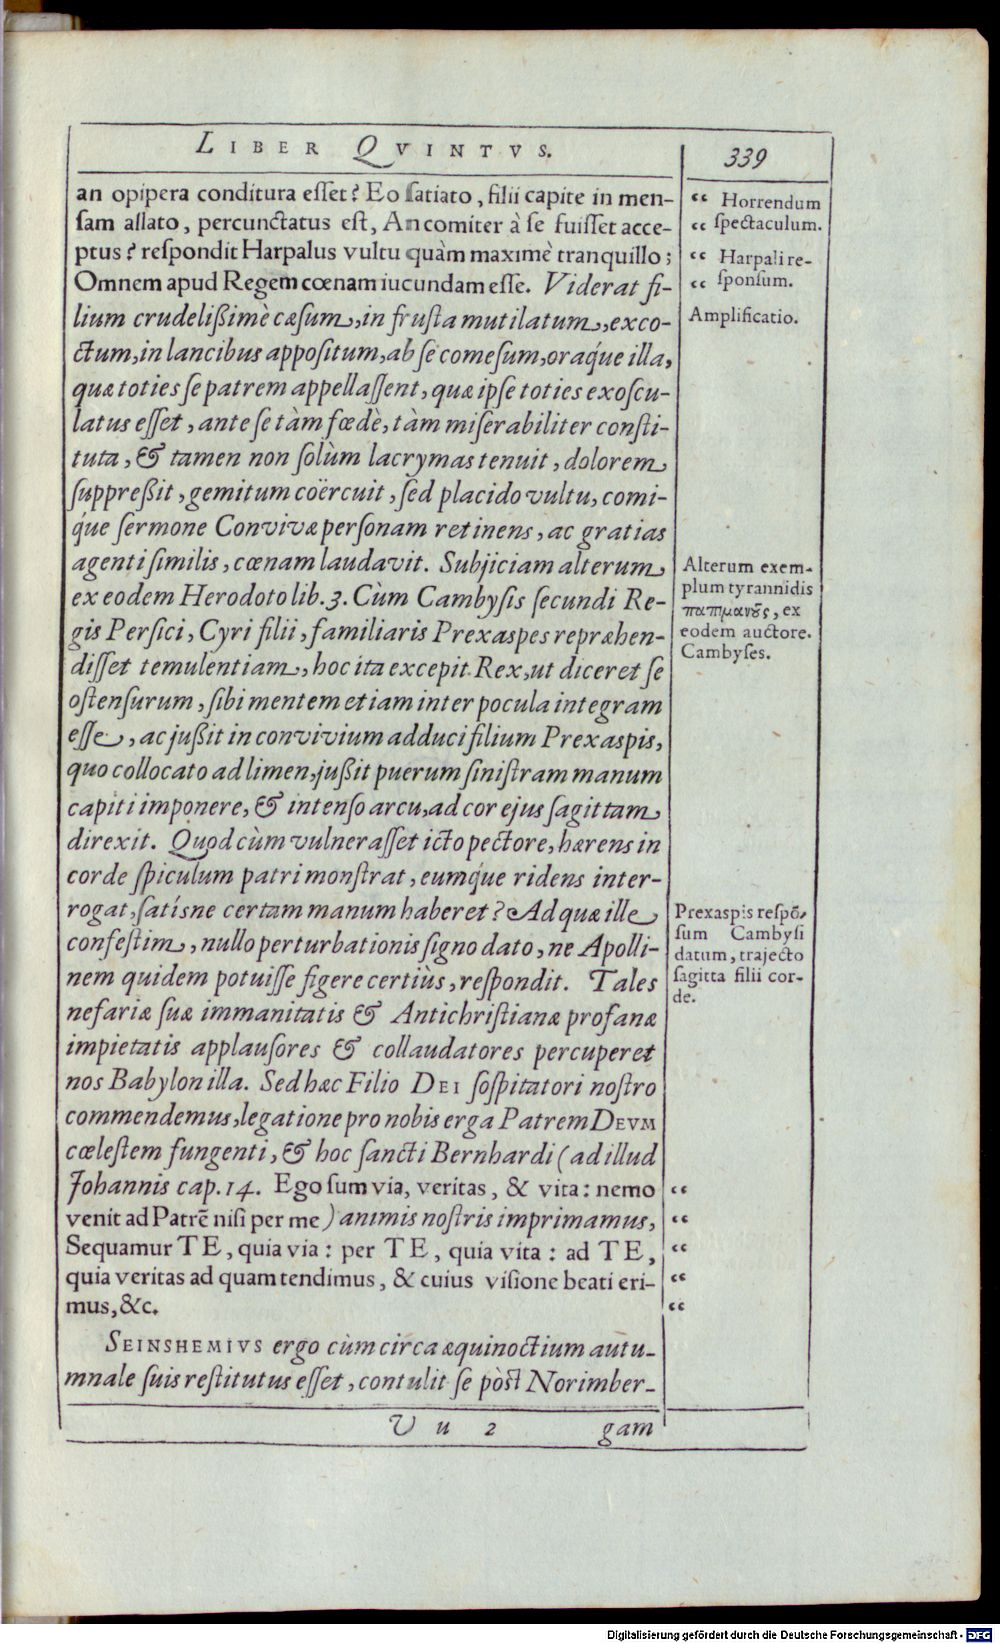 LIBER QVINTVS.
339
an opipera conditura esset? Eo satiato, filii capite in men-
sam allato, percunctatus est, An comiter à se fuisset acce-
ptus? respondit Harpalus vultu quàm maximè tranquillo;
Omnem apud Regem cœnam iucundam esse. Viderat fi-
lium crudelißimè cæsum, in frusta mutilatum, exco-
ctum, in lancibus appositum, ab se comesum, oraq́ue illa,
quæ toties se patrem appellassent, quæ ipse toties exoscu-
latus esset, ante se tàm fœdè, tàm miserabiliter consti-
tuta, & tamen non solùm lacrymas tenuit, dolorem
suppreßit, gemitum coërcuit, sed placido vultu, comi-
q́ue sermone Convivæ personam retinens, ac gratias
agenti similis, cœnam laudavit. Subjiciam alterum
ex eodem Herodoto lib. 3. Cùm Cambysis secundi Re-
gis Persici, Cyri filii, familiaris Prexaspes repræhen-
disset temulentiam, hoc ita excepit Rex, ut diceret se
ostensurum, sibi mentem etiam inter pocula integram
esse, ac jußit in convivium adduci filium Prexaspis,
quo collocato ad limen, jußit puerum sinistram manum
capiti imponere, & intenso arcu, ad cor ejus sagittam
direxit. Quod cùm vulnerasset icto pectore, hærens in
corde spiculum patri monstrat, eumq́ue ridens inter-
rogat, satísne certam manum haberet? Ad quæ ille
confestim, nullo perturbationis signo dato, ne Apolli-
nem quidem potuisse figere certiùs, respondit. Tales
nefariæ suæ immanitatis & Antichristianæ profanæ
impietatis applausores & collaudatores percuperet
nos Babylon illa. Sed hæc Filio DEI sospitatori nostro
commendemus, legatione pro nobis erga Patrem DEVM
cœlestem fungenti, & hoc sancti Bernhardi (ad illud
Johannis cap. 14. Ego sum via, veritas, & vita: nemo
venit ad Patrē nisi per me) animis nostris imprimamus,
Sequamur TE, quia via: per TE, quia vita: ad TE,
quia veritas ad quam tendimus, & cuius visione beati eri-
mus, &c.
SEINSHEMIVS ergo cùm circa æquinoctium autu-
mnale suis restitutus esset, contulit se pòst Norimber-
V u 2 gam
“ Horrendum
“ spectaculum.
“ Harpali re-
“ sponsum.
Amplificatio.
Alterum exem-
plum tyrannidis
παπιμανοῦς, ex
eodem auctore.
Cambyses.
Prexaspis respō-
sum Cambysi
datum, trajecto
sagitta filii cor-
de.
“
“
“
“
“
Digitalisierung gefördert durch die Deutsche Forschungsgemeinschaft - DFG